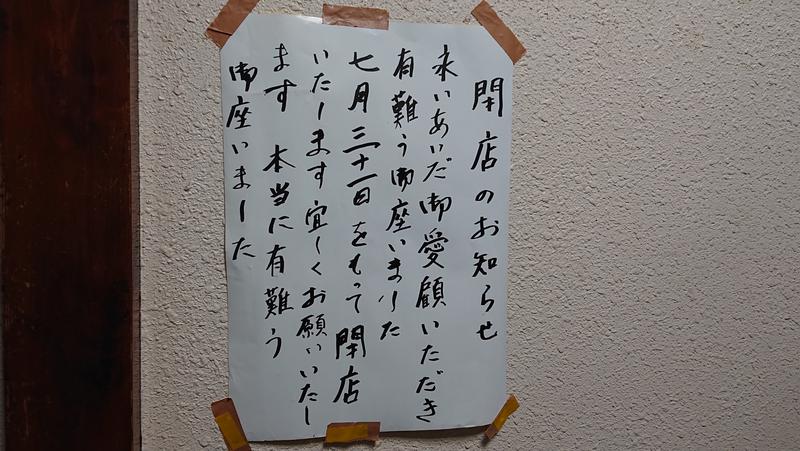 閉店のお知らせ
永いあいだ御愛顧いただき
有難う御座いました
七月三十一日をもって閉店
いたします宜しくお願いいたし
ます 本当に有難う
御座いました